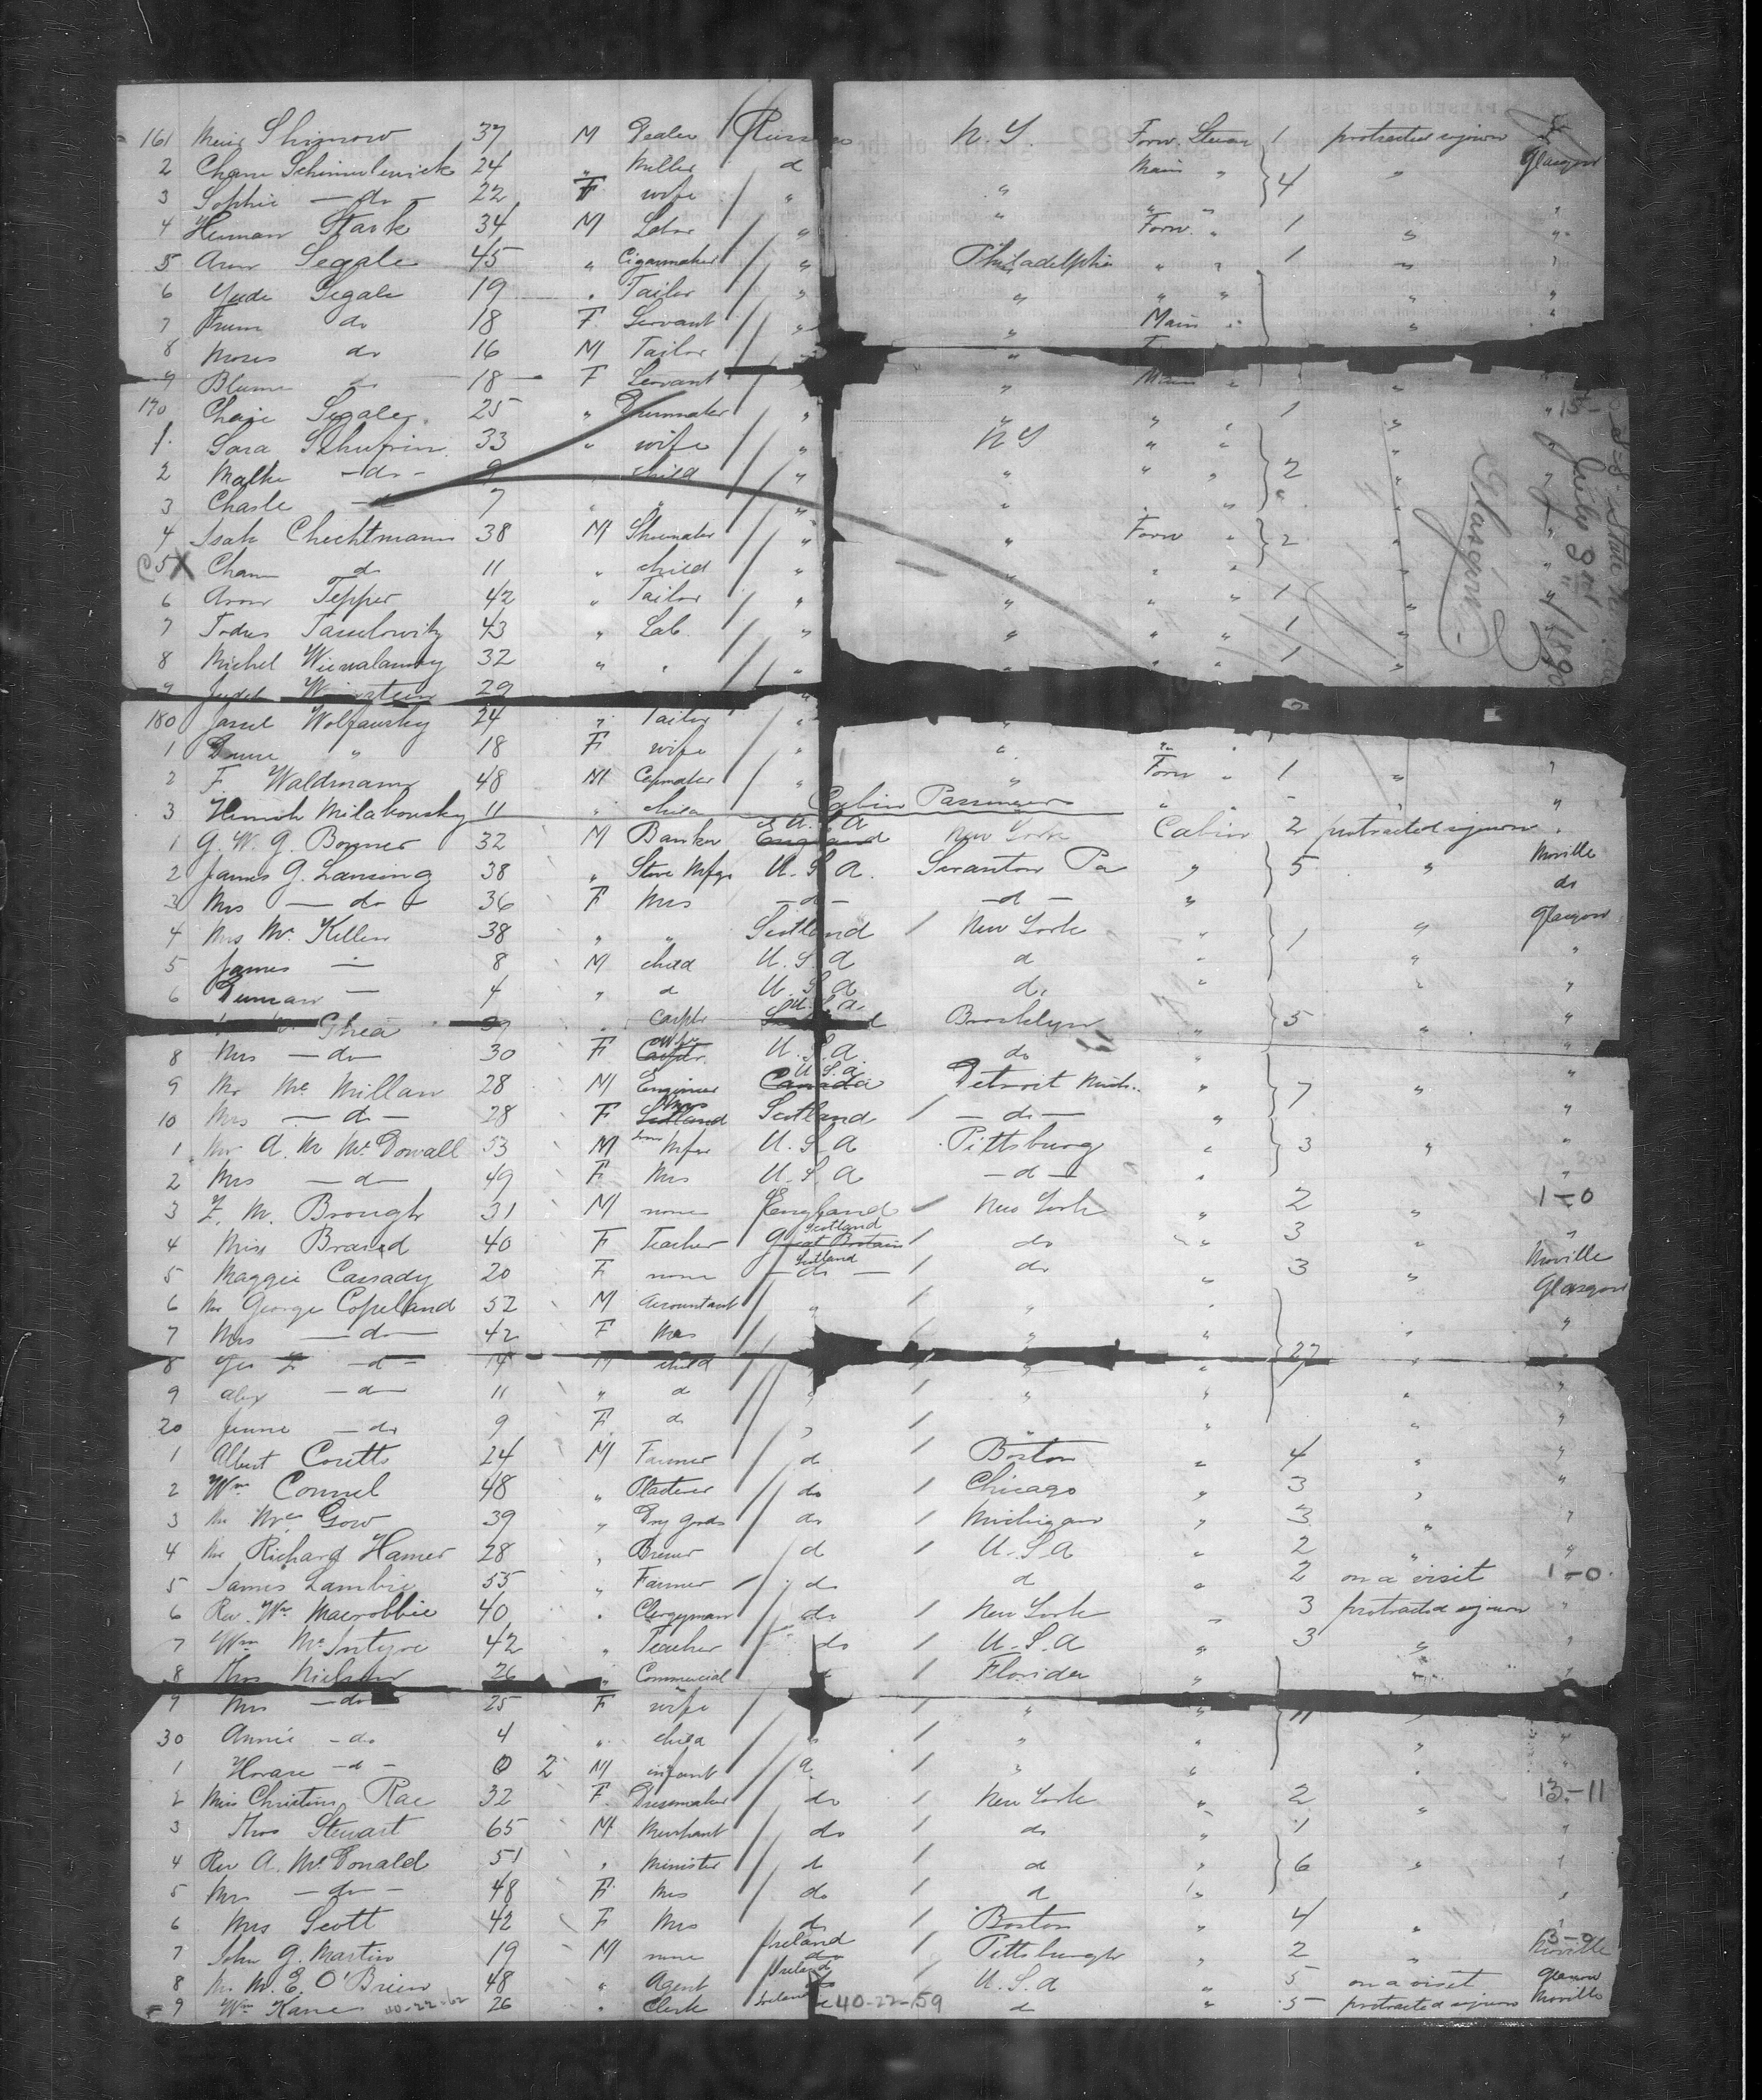 161 Meier Shimow 37 M Dealer Russia N.Y. Forw. Steer 1 protracted sojourn
2 Chane 24 " Miller d Main " 4 " Glasgow
3 Sophie — do — 22 F wife " " " "
4 Herman Stark 34 M Labor " " Forw. " 1 " "
5 Aron Segale 45 " Cigarmaker " Philadelphia " " 1 " "
6 Jude Segale 19 " Tailor " " " " " "
7 Frum do 18 F Servant " " Main " " "
8 Moses do 16 M Tailor "
9 Blume do 18 F Servant " " Main " "
170 Chaje Segaler 25 " " " " " 1 " "
1 Sara Schufrin 33 " wife " N Y " " "
2 Malke — do — 9 " child " " " " 2 "
3 Chasle — d 7 " " " " " " "
4 Isak Chechtmann 38 M Shoemaker " " Forw " 2 "
5 X Cham d 11 " child " " " "
6 Aron Tepper 42 " Tailor " " " " 1 "
7 Todres 43 " Lab. " " " " 1 "
8 Michel 32 " " " " " 1 "
9 Judel Weinstein 29
180 Jossel Wolfansky 24 " Tailor " "
1 " 18 F wife " " " "
2 F. Waldmann 48 M Capmaker " " Forw " 1 " "
3 Heinrich Milakowsky 11 " child " " "
Cabin Passengers
1 G. W. G. Bonner 32 M Banker England U.S.A New York Cabin 2 protracted sojourn "
2 James G. Lansing 38 " Stove Mfgr U.S.A. Scranton Pa " 5 " Moville
3 Mrs — do — 36 F Mrs — d — — d — " do
4 Mrs Mc Killen 38 " " Scotland / New York " 1 " Glasgow
5 James — 8 M child U.S.A d " " "
6 Duncan — 4 " d U.S.A do " " "
Shea " Carptr U.S.A. Brooklyn " 5 " "
8 Mrs — do — 30 F wife U.S.A. do " "
9 Mr Mc Millan 28 M Engineer Canada U.S.A. Detroit Mich. " 7 " "
10 Mrs — d — 28 F Scotland Mrs Scotland / — do — " "
1 Mr A. M Mc Dowall 53 M Iron Mfer U.S.A Pittsburg " 3 " "
2 Mrs — d — 49 F Mrs U.S.A — d — " "
3 Z. M. Brough 31 M none England / New York " 2 " 1–0
4 Miss Braid 40 F Teacher Great Britain Scotland / do " 3 " "
5 Maggie Cassady 20 F none — do — Scotland / do " 3 " Moville
6 Mr George Copeland 52 M Accountant " / " " Glasgow
7 Mrs — do — 42 F Mrs / " " " "
8 Geo — d — 14 M child / " " 27 "
9 Alex — d — 11 " d " / " " " "
20 Jennie — do 9 F d " / " " " "
1 Albert Coutts 24 M Farmer do / Boston " 4 " "
2 Wm Connel 48 " Plasterer do / Chicago " 3 " "
3 Mr Mc Gow 39 " Dry goods do / Michigan " 3 " "
4 Mr Richard Hamer 28 " Brewer d / U.S.A " 2 " "
5 James Lambie 55 " Farmer do d " 2 on a visit 1–0
6 Rev. Wm Macrobbie 40 " Clergyman do / New York " 3 protracted sojourn "
7 Wm McIntyre 42 " Teacher do / U.S.A " 3 " "
8 Thos Nielson 26 " Commercial / Florida " " "
9 Mrs — do 25 F wife / " " 11 "
30 Annie — do 4 " child / " " " "
1 Horace — d — 0 2 M infant / " " " "
2 Miss Christina Rae 32 F Dressmaker do / New York " 2 " 13–11
3 Thos Stewart 65 M Merchant do / do " 1 "
4 Rev A. McDonald 51 " Minister do / d " 6 " "
5 Mrs — do — 48 F Mrs do / d " "
6 Mrs Scott 42 F Mrs do / Boston " 4 " "
7 John G. Martin 19 M none Ireland / Pittsburgh " 2 " 3–0 Moville
8 Mr M. E. O'Brien 48 " Agent Ireland / U.S.A " 5 on a visit Glasgow
9 Wm Kane 40-22-62 26 " Clerk Ireland 40-22-159 d " 5 protracted sojourn Moville
Glasgow
July 3rd / 1890